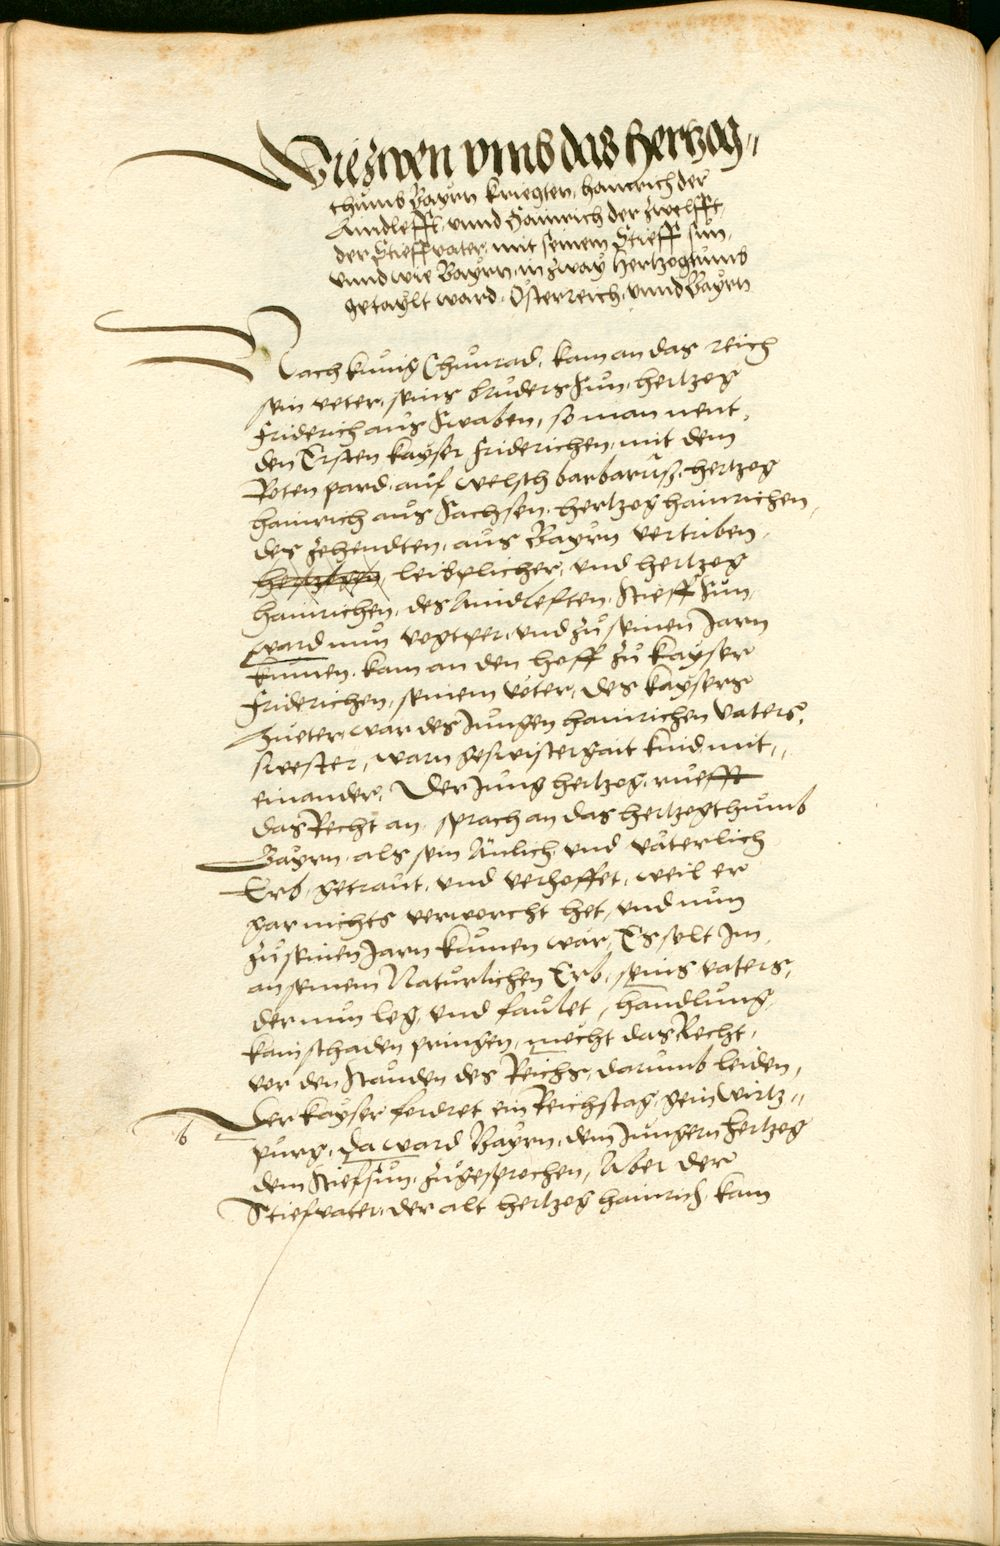 Wie zwen vmb das hertzog„
thumb Bayrn kriegten, hainrich der
Aindlefft, vnnd Hainrich der zwelfft,
der Stieffvater, mit seinem Stieff sun,
vnnd wie Bayrn, in zway hertzogtumb
getaylt ward, Osterreich, vnnd Bayrn
Nach kunig Chunrad, kam an das reich
sein veter, seins bruders sun, hertzog
Friderich aus Swaben, so man nent,
den Ersten kayser Friderichen, mit dem
Roten pard, auf welsch barbarussz, hertzog
hainrich aus Sachsen, hertzog hainrichen,
des zehendten, aus Bayrn vertriben,
leibplicher, vnd hertzog
hainrichen, des Aindleften, stieff sun,
ward nun vogtper, vnd zu seinen Jarn
kumen, kam an den hoff zu kayser
Friderichen, seinem veter, des kaysers
Mueter, war des Jungen hainrichen vaters,
swester, warn geswistergait kind mit„
einander, Der Jung hertzog, ruefft
das Recht an, sprach an das hertzogthumb
Bayrn, als sein Anlich, vnd väterlich
Erb, getraut, vnd verhoffet, weil er
gar nichts verworcht het, vnd nun
zu seinen Jarn kumen wär, Es solt Im,
an seinem Naturlichen Erb, seins vaters,
der nun leg, vnd faulet, handlung,
kain schaden pringen, mecht das Recht,
vor den Stenden des Reichs, darumb leiden,
Der kayser fordret ein Reichstag, gein Wirtz„
6
purg, da ward Bayrn, dem Jungern hertzog
dem stiefsun, zugesprochen, Aber der
Stiefvater, der alt hertzog hainrich, kam